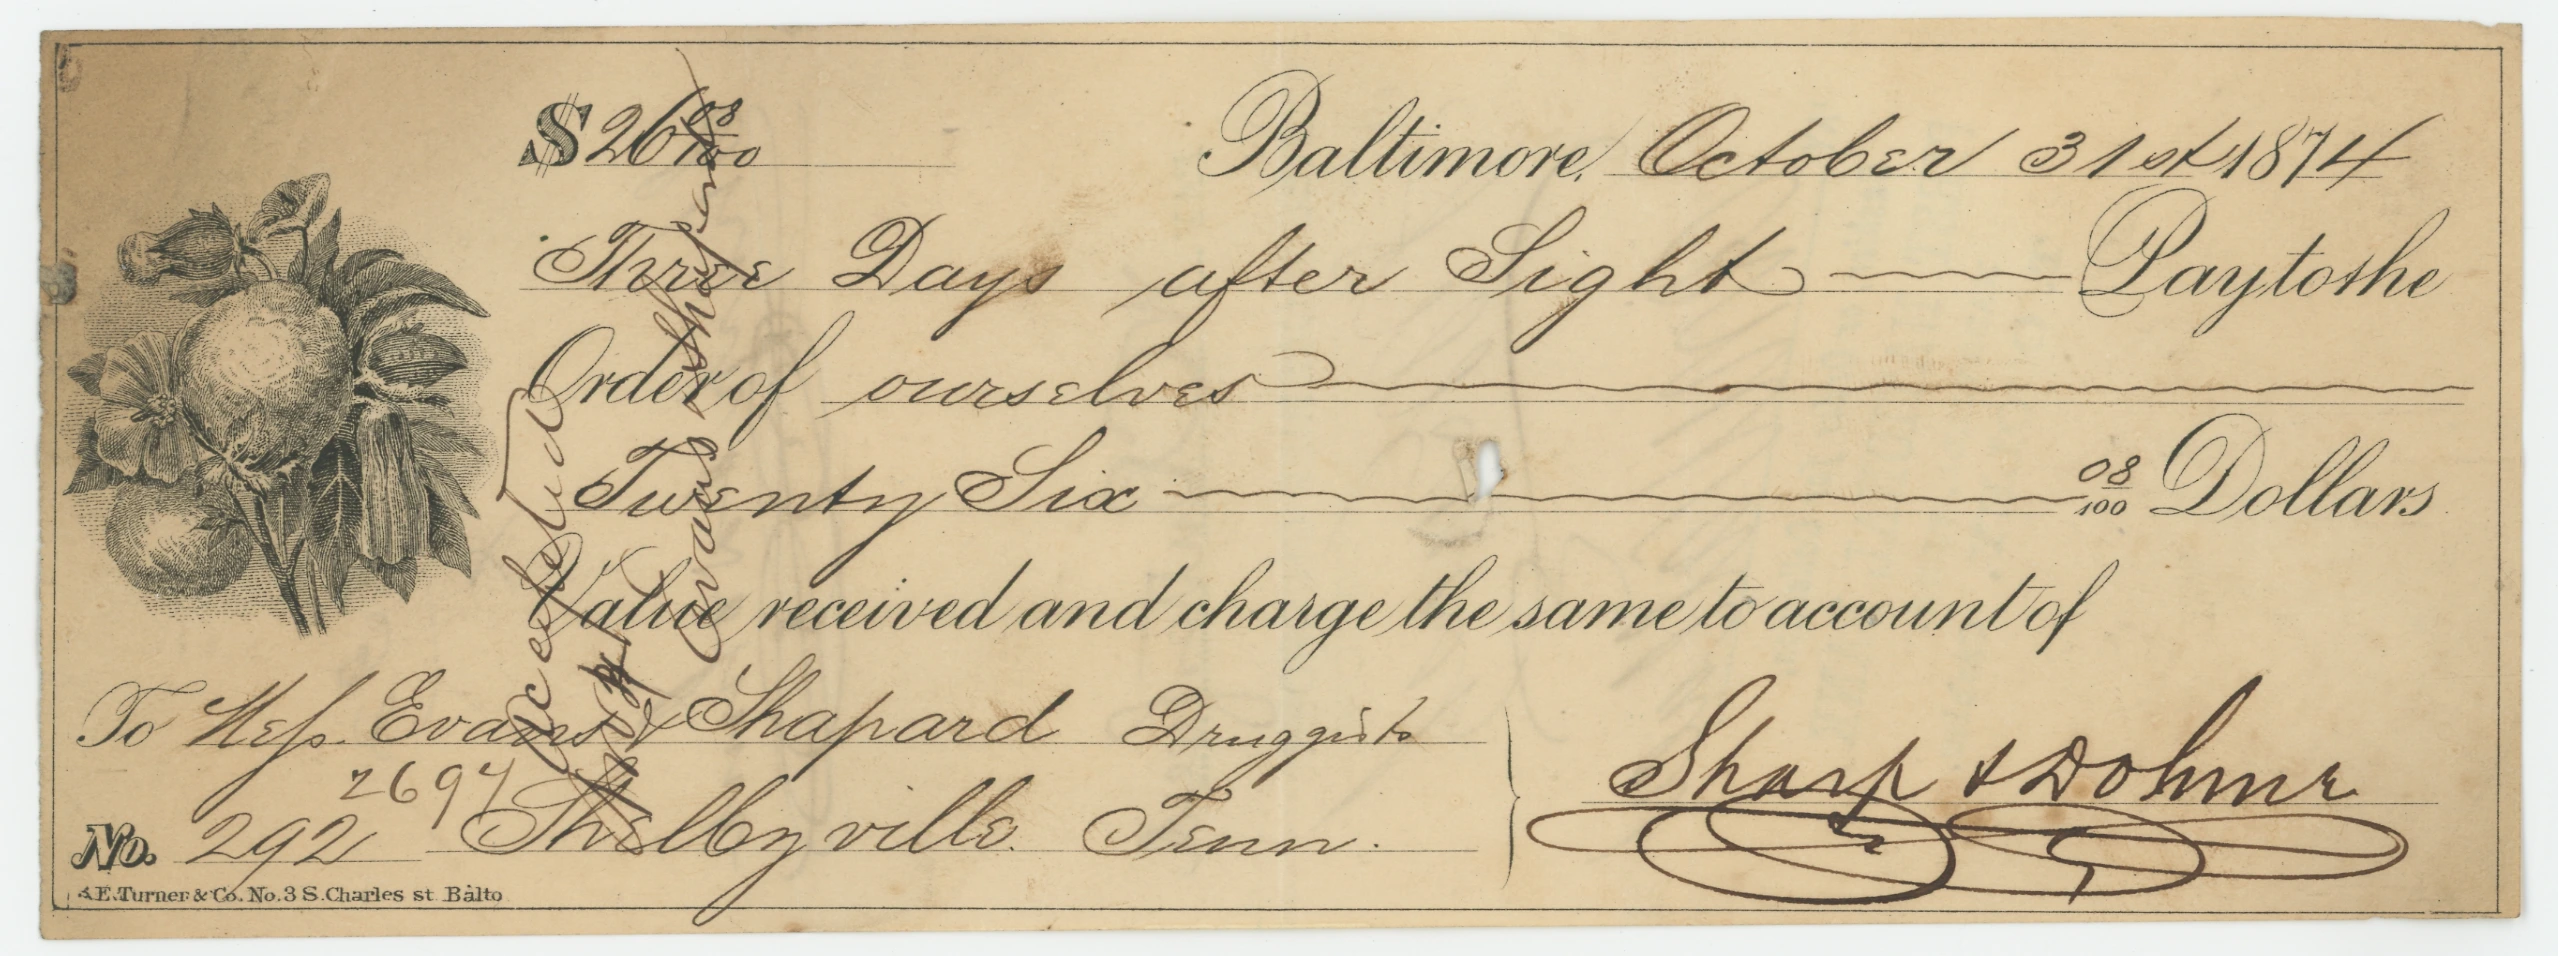 $ 26 08/100 Baltimore, October 31st 1874
Three Days after Sight Pay to the
Order of ourselves
Twenty Six 08/100 Dollars
Value received and charge the same to account of
To Mess. Evans & Shapard Druggists
2697
No. 292 Shelbyville. Tenn.
Sharp & Dohme
A.E. Turner & Co. No. 3 S. Charles st Balto
Accepted
Evans & Shapard